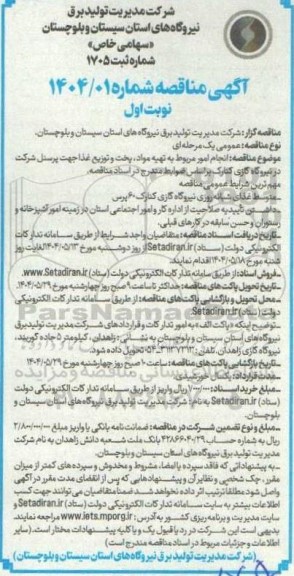 شرکت مدیریت تولید برق
نیروگاه های استان سیستان و بلوچستان
«سهامی خاص»
شماره ثبت ۱۷۰۵
آگهی مناقصه شماره ۱۴۰۴/۰۱
نوبت اول
مناقصه گزار: شرکت مدیریت تولید برق نیروگاه های استان سیستان و بلوچستان.
نوع مناقصه: عمومی یک مرحله ای
موضوع مناقصه: انجام امور مربوط به تهیه مواد، پخت و توزیع غذا جهت پرسنل شرکت
در نیروگاه گازی کنارک بر اساس ضوابط مندرج در اسناد مناقصه.
مهم ترین شرایط عمومی مناقصه
متوسط غذای شبانه روزی نیروگاه گازی کنارک ۶۰ پرس
داشتن تأییدیه صلاحیت از اداره کار و امور اجتماعی استان در زمینه امور آشپزخانه و
رستوران و حسن سابقه در کارهای قبلی.
تاریخ دریافت اسناد مناقصه: متقاضیان واجد شرایط از طریق سامانه تدارکات
الکترونیکی دولت (ستاد) Setadiran.ir از روز دوشنبه مورخ ۱۴۰۴/۰۵/۱۳ لغایت روز
شنبه مورخ ۱۴۰۴/۰۵/۱۸ اقدام نمایند.
فروش اسناد: از طریق سامانه تدارکات الکترونیکی دولت (ستاد) www.Setadiran.ir.
تاریخ تحویل پاکت های مناقصه: حداکثر تا ساعت ۹ صبح روز چهارشنبه مورخ ۱۴۰۴/۰۵/۲۹.
محل تحویل و بازگشایی پاکت های مناقصه: از طریق سامانه تدارکات الکترونیکی
دولت (ستاد) Setadiran.ir.
توضیح اینکه «پاکت الف» به امور تدارکات و قراردادهای شرکت مدیریت تولید برق
نیروگاه های استان سیستان و بلوچستان به نشانی: زاهدان، کیلومتر ۵ جاده کورین،
نیروگاه گازی زاهدان، تلفن: تحویل داده شود.
تاریخ بازگشایی پاکت های مناقصه: ساعت ۱۰ صبح روز چهارشنبه مورخ ۱۴۰۴/۰۵/۲۹
مدت قرارداد: یکسال خورشیدی
مبلغ خرید اسناد: ریال واریز از طریق سامانه تدارکات الکترونیکی دولت
(ستاد) Setadiran.ir به نام: شرکت مدیریت تولید برق نیروگاه های استان سیستان و
بلوچستان.
مبلغ و نوع تضمین شرکت در مناقصه: ضمانت نامه بانکی یا واریز مبلغ
ریال به شماره حساب بانک ملت شعبه دانش زاهدان به نام شرکت
مدیریت تولید برق نیروگاه های استان سیستان و بلوچستان.
به پیشنهاداتی که فاقد سپرده یا امضاء، مشروط و مخدوش و سپرده های کمتر از میزان
مقرر، چک شخصی و نظایر آن و پیشنهادهایی که پس از انقضای مدت مقرر در آگهی
واصل شود مطلقا ترتیب اثر داده نخواهد شد ضمنا متقاضیان می توانند جهت کسب
اطلاعات بیشتر به سایت سامانه تدارکات الکترونیکی دولت (ستاد) Setadiran.ir و
سایت مدیریت و برنامه ریزی کشور به آدرس: www.iets.mporg.ir مراجعه نمایند.
بدیهی است این شرکت در رد یا قبول یک و یا کلیه پیشنهادات مختار است. (سایر
اطلاعات و جزئیات مربوط در اسناد مناقصه مندرج است)
(شرکت مدیریت تولید برق نیروگاه های استان سیستان و بلوچستان)